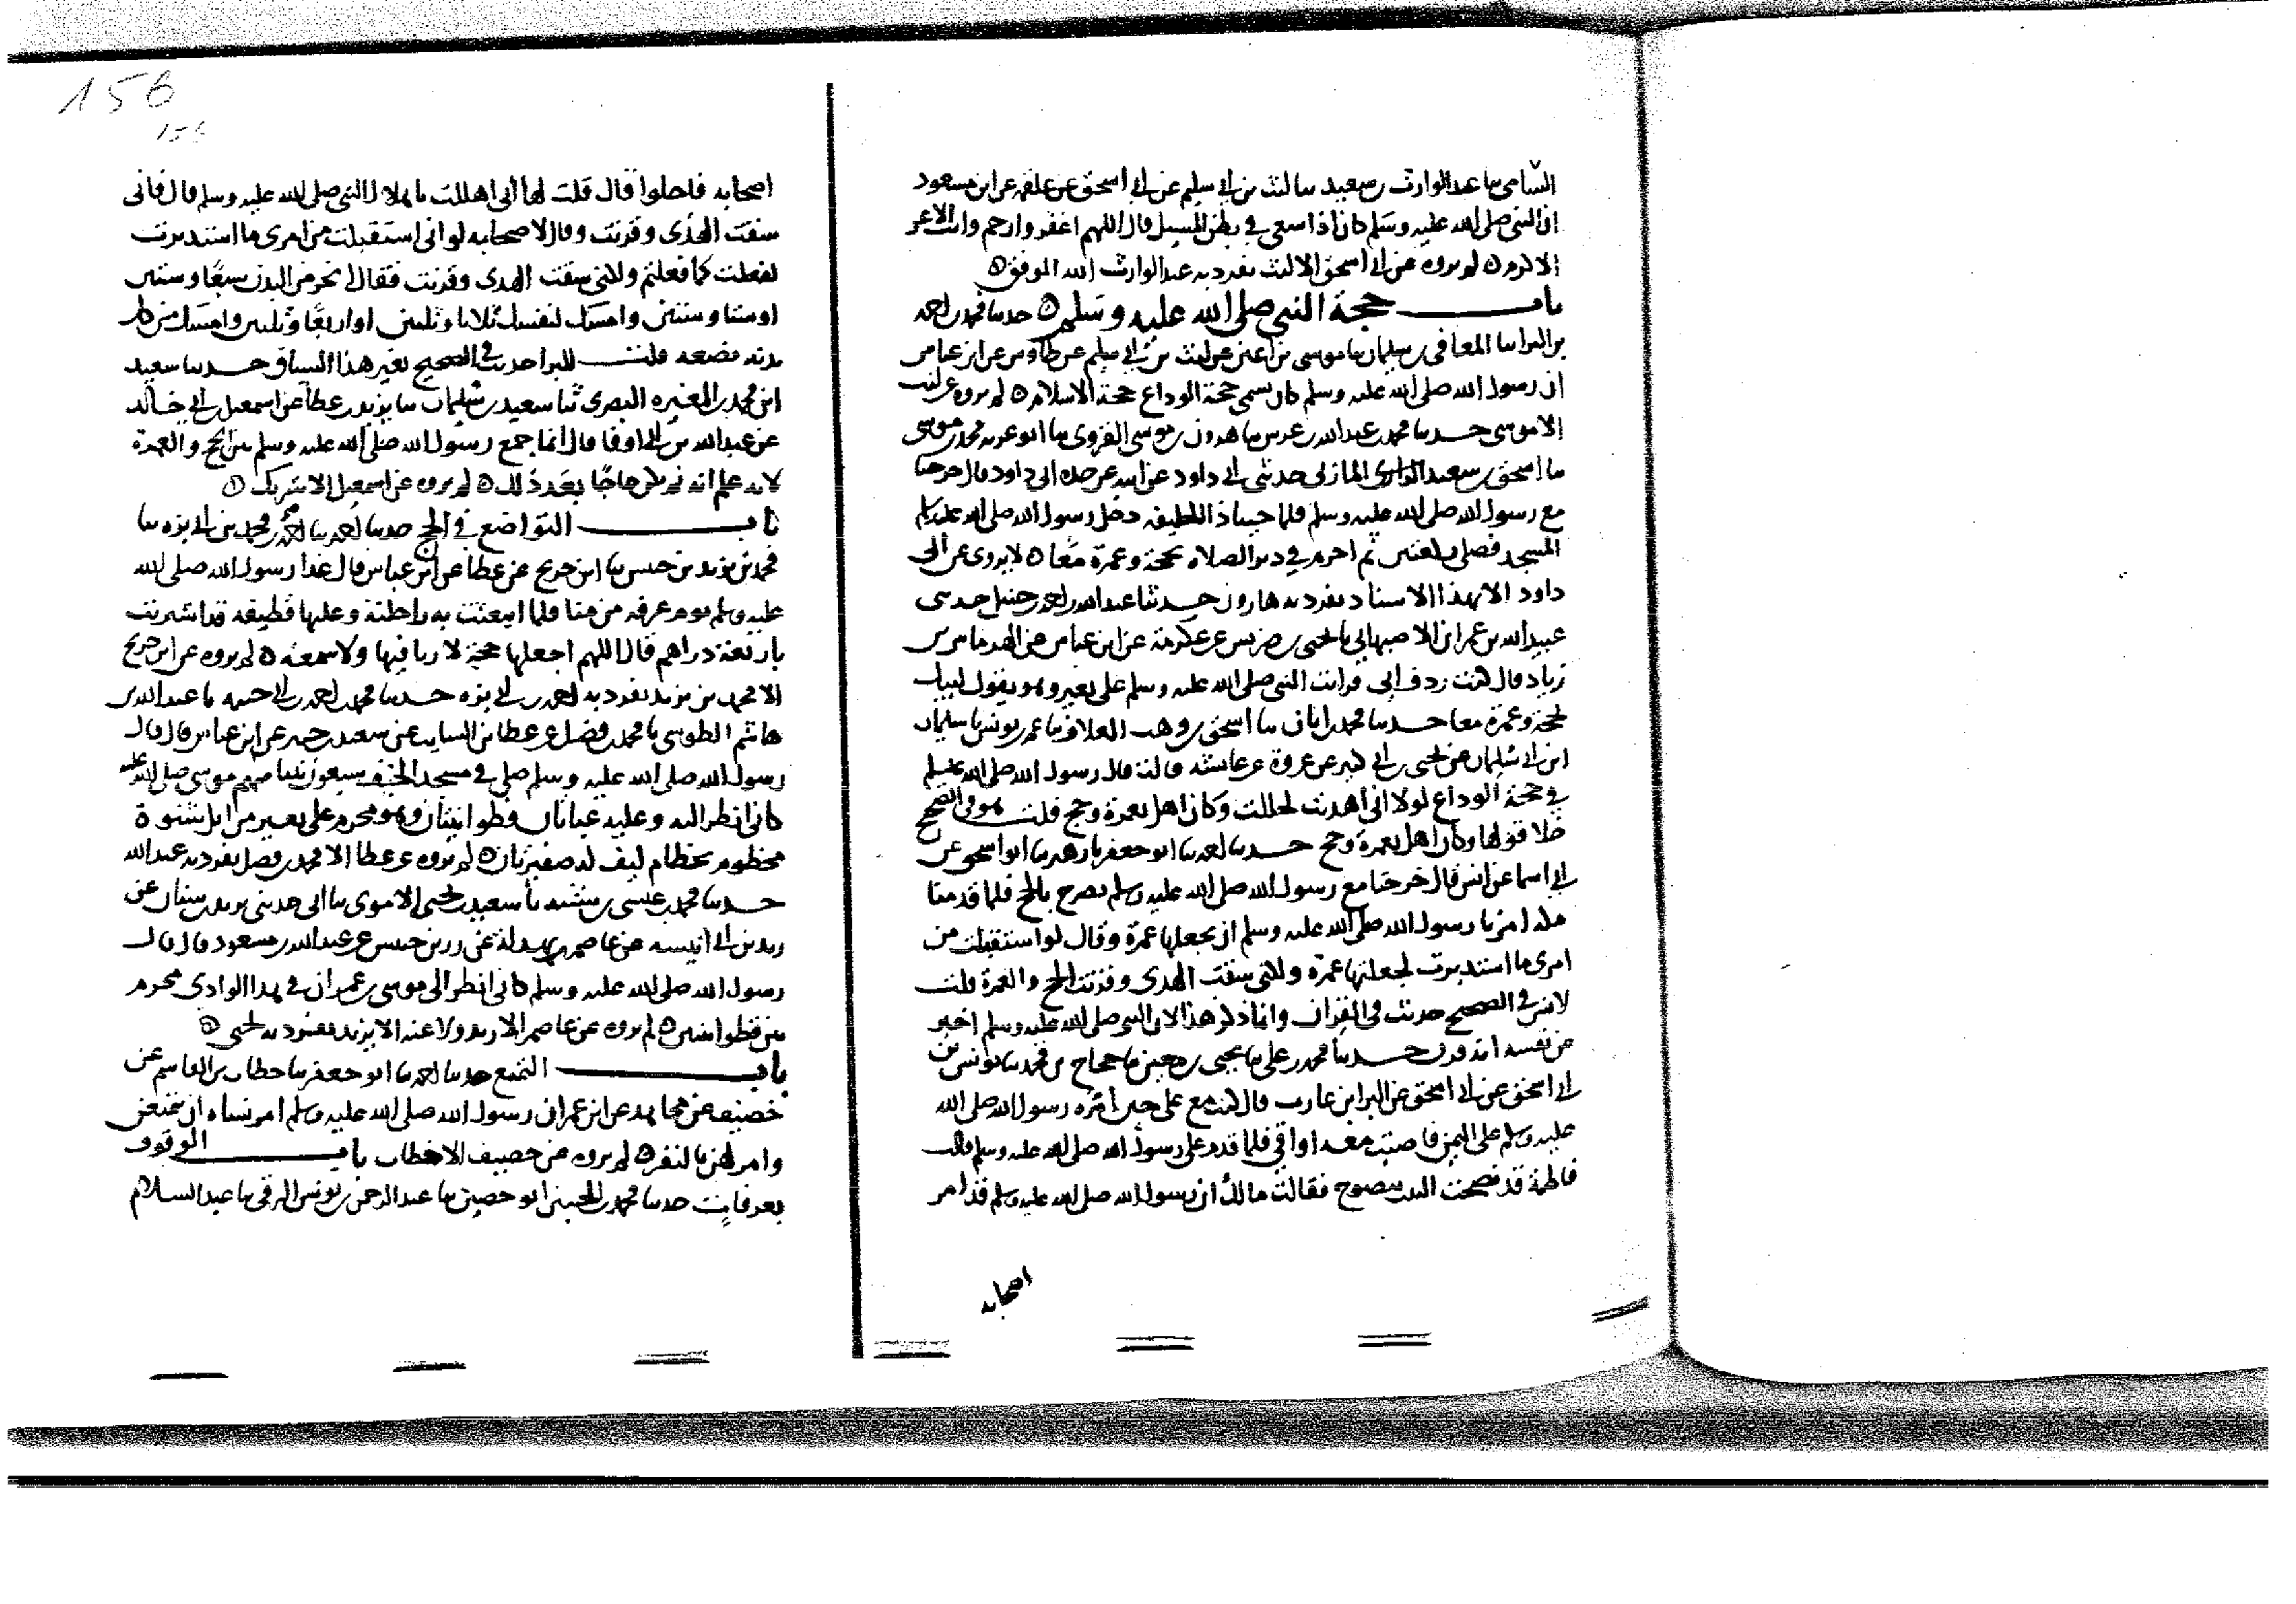 السامى ثنا عبد الوارث بن سعيد ثنا ليث بن ابى سليم عن ابى اسحق عن علقمه عن ابن مسعود
ان النبى صلى الله عليه وسلم كان اذا سعى فى بطن المسيل قال اللهم اغفر وارحم وانت الاعز
الاكرم لم يروه عن ابى اسحق الا ليث تفرد به عبد الوارث الله الموفق
باب حجة النبى صلى الله عليه وسلم حدثنا محمد بن احمد
بن البرا ثنا المعافى بن سليمان ثنا موسى بن اعين عن ليث بن ابى سليم عن طاوس عن ابن عباس
ان رسول الله صلى الله عليه وسلم كان يسمى حجة الوداع حجة الاسلام لم يروه عن ليث
الا موسى حدثنا محمد بن عبد الله بن عرس ثنا هرون بن موسى الفروى ثنا ابو غزيه محمد بن موسى
ثنا اسحق بن سعيد المازنى حدثنى ابى داود عن ابيه عن جده ابى داود قال خرجنا
مع رسول الله صلى الله عليه وسلم فلما جينا ذا الحليفه دخل رسول الله صلى الله عليه وسلم
المسجد فصلى ركعتين ثم احرم فى دبر الصلاه بحجة وعمرة معا لا يروى عن ابى
داود الا بهذا الاسناد تفرد به هارون حدثنا عبد الله بن احمد بن حنبل حدثنى
عبيد الله بن عمران الاصبهانى يحيى بن ضريس عن عكرمة عن ابن عباس عن الهرماس بن
زياد قال كنت ردف ابى فرايت النبى صلى الله عليه وسلم على بعير وهو يقول لبيك
بحجة وعمرة معا حدثنا محمد بن ابان ثنا اسحق بن وهب العلاف ثنا عمر بن يونس ثنا سليمان
ابن ابى سليمان عن يحيى بن ابى كثير عن عروة عن عائشه قالت قال رسول الله صلى الله عليه وسلم
فى حجة الوداع لولا انى اهديت لحللت وكان اهل بعمرة وحج قلت هو فى الصحيح
خلا قولها وكان اهل بعمرة وحج حدثنا احمد ثنا ابو جعفر ثنا زهير ثنا ابو اسحق عن
ابى اسما عن انس قال خرجنا مع رسول الله صلى الله عليه وسلم نصرخ بالحج فلما قدمنا
مكه امرنا رسول الله صلى الله عليه وسلم ان نجعلها عمرة وقال لو استقبلت من
امرى ما استدبرت لجعلتها عمرة ولكنى سقت الهدى وقرنت الحج والعمرة قلت
لانس فى الصحيح حديث فى القران وانما ذكر هذا لان النبى صلى الله عليه وسلم اخبر
عن نفسه انه قرن حدثنا محمد بن على ثنا يحيى بن معين ثنا حجاج بن محمد ثنا يونس بن
ابى اسحق عن ابى اسحق عن البرا بن عازب قال كنت مع على حين امره رسول الله صلى الله
عليه وسلم على اليمن فاصبت معه اواقى فلما قدم على رسول الله صلى الله عليه وسلم قالت
فاطمة قد نضحت البيت بنضوح فقالت مالك ان رسول الله صلى الله عليه وسلم قد امر
اصحابه
156
156
اصحابه فاحلوا قال قلت لها انى اهللت باهلال النبى صلى الله عليه وسلم قال فانى
سقت الهدى وقرنت وقال لاصحابه لو انى استقبلت من امرى ما استدبرت
لفعلت كما فعلتم ولكنى سقت الهدى وقرنت فقال لى نحر من البدن سبعا وستين
او ستا وستين وامسك لنفسك ثلاثا وثلثين او اربعا وثلثين وامسك من كل
بدنه بضعه قلت للبرا حديث فى الصحيح بغير هذا السياق حدثنا سعيد
ابن محمد بن المغيره البصرى ثنا سعيد بن سليمان ثنا يزيد بن عطا عن اسمعيل بن ابى خالد
عن عبد الله بن ابى اوفا قال انما جمع رسول الله صلى الله عليه وسلم بين الحج والعمرة
لانه علم انه لم يكن حاجا بعد ذلك لم يروه عن اسمعيل الا شريك
باب التواضع فى الحج حدثنا احمد ثنا احمد بن محمد بن ابى بزه ثنا
محمد بن يزيد بن خنيس ثنا ابن جريج عن عطا عن ابن عباس قال غدا رسول الله صلى الله
عليه وسلم يوم عرفه من منا فلما انبعثت به راحلته وعليها قطيفه قد اشتريت
باربعة دراهم قال اللهم اجعلها حجة لا ريا فيها ولا سمعه لم يروه عن ابن جريج
الا محمد بن يزيد تفرد به احمد بن ابى بزه حدثنا محمد بن احمد بن ابى خيثمه ثنا عبد الله بن
هاشم الطوسى ثنا محمد بن فضيل عن عطا بن السايب عن سعيد بن جبير عن ابن عباس قال قال
رسول الله صلى الله عليه وسلم صلى فى مسجد الخيف سبعون نبيا منهم موسى صلى الله عليه
كانى انظر اليه وعليه عباتان قطوانيتان وهو محرم على بعير من ابل شنوة
مخطوم بخطام ليف له ضفيرتان لم يروه عن عطا الا محمد بن فضيل تفرد به عبد الله
حدثنا محمد بن عيسى بن شيبه ثنا سعيد بن يحيى الاموى ثنا ابى حدثنى يزيد بن سنان عن
زيد بن ابى انيسه عن عاصم بن بهدلة عن زر بن حبيش عن عبد الله بن مسعود قال قال
رسول الله صلى الله عليه وسلم كانى انظر الى موسى بن عمران فى هذا الوادى محرم
بين قطوانيتين لم يروه عن عاصم الا زيد ولا عنه الا يزيد تفرد به يحيى
باب التمتع حدثنا احمد ثنا ابو جعفر ثنا خطاب بن القاسم عن
خصيف عن مجاهد عن ابن عمر ان رسول الله صلى الله عليه وسلم امر نساه ان يتمتعن
وامرهن بالنفر لم يروه عن خصيف الا خطاب باب الوقوف
بعرفات حدثنا محمد بن الحسين ابو حصين ثنا عبد الرحمن بن يونس الرقى ثنا عبد السلام